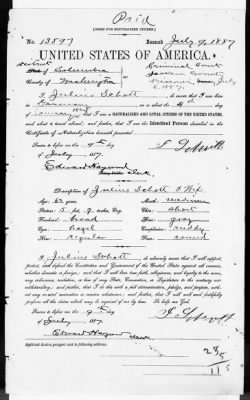 Paid
[FORM FOR NATURALIZED CITIZEN.]
No. 13597 Issued July 9, 1887
UNITED STATES OF AMERICA.
District
of Columbia
County of Washington
Criminal Court
I, Julius Schott, do swear that I was born
in Germany on or about the 4th day of
January; that I am a NATURALIZED AND LOYAL CITIZEN OF THE UNITED STATES,
and about to travel abroad; and further, that I am the Identical Person described in the
Certificate of Naturalization herewith presented.
Sworn to before me this 9th day
of July, 1887.
Edward Hayward
Clerk.
Description of Julius Schott & Wife
Age: 62 years
Mouth: medium
Stature: 5 ft. 9 inches, Eng.
Chin: short
Forehead: broad
Hair: gray
Eyes: hazel
Complexion: ruddy
Nose: regular
Face: round
I, Julius Schott, do solemnly swear that I will support,
protect, and defend the Constitution and Government of the United States against all enemies,
whether domestic or foreign; and that I will bear true faith, allegiance, and loyalty to the same,
any ordinance, resolution, or law of any State, Convention, or Legislature to the contrary not-
withstanding; and further, that I do this with a full determination, pledge, and purpose, with-
out any mental reservation or evasion whatsoever; and further, that I will well and faithfully
perform all the duties which may be required of me by law. So help me God.
Sworn to before me this 9th
day of July, 1887
J. Schott
Edward Hayward
Clerk
Applicant desires passport sent to following address: